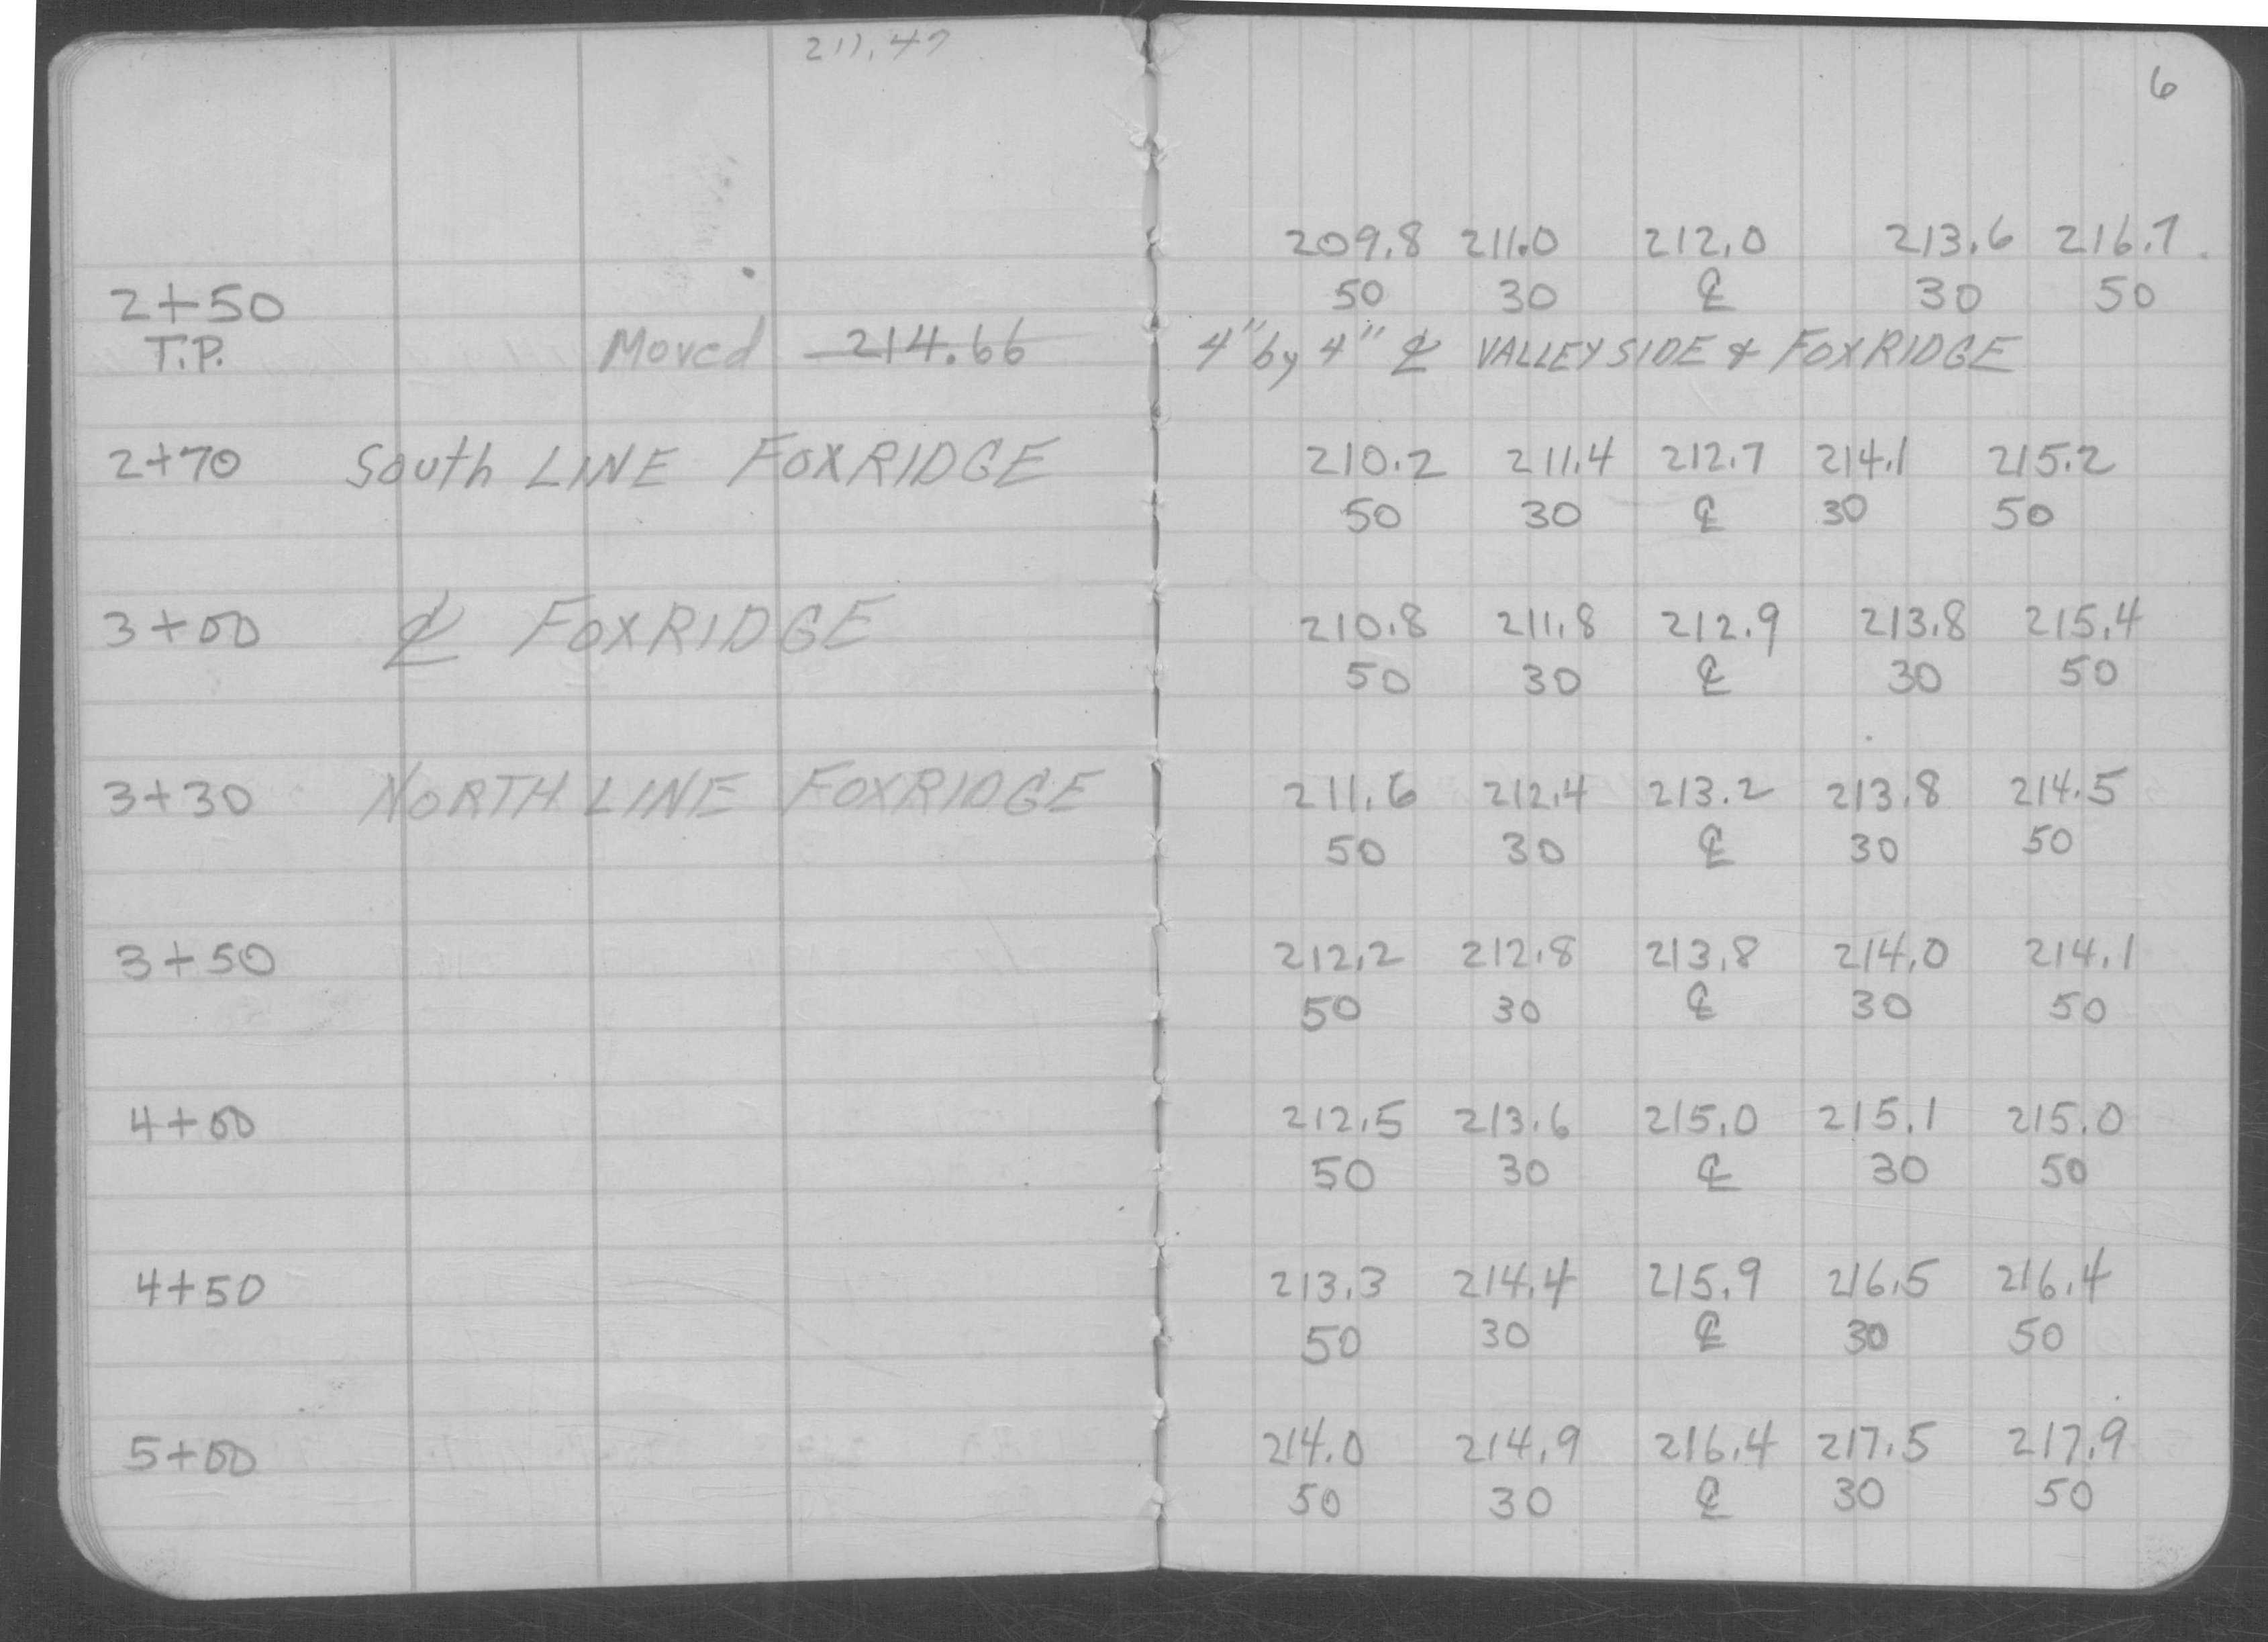 211.47
6
209.8 211.0 212.0 213.6 216.7
2+50 50 30 ℄ 30 50
T.P. Moved 214.66 4" by 4" ℄ VALLEYSIDE & FOXRIDGE
2+70 South LINE FOXRIDGE 210.2 211.4 212.7 214.1 215.2
50 30 ℄ 30 50
3+00 ℄ FOXRIDGE 210.8 211.8 212.9 213.8 215.4
50 30 ℄ 30 50
3+30 NORTH LINE FOXRIDGE 211.6 212.4 213.2 213.8 214.5
50 30 ℄ 30 50
3+50 212.2 212.8 213.8 214.0 214.1
50 30 ℄ 30 50
4+00 212.5 213.6 215.0 215.1 215.0
50 30 ℄ 30 50
4+50 213.3 214.4 215.9 216.5 216.4
50 30 ℄ 30 50
5+00 214.0 214.9 216.4 217.5 217.9
50 30 ℄ 30 50